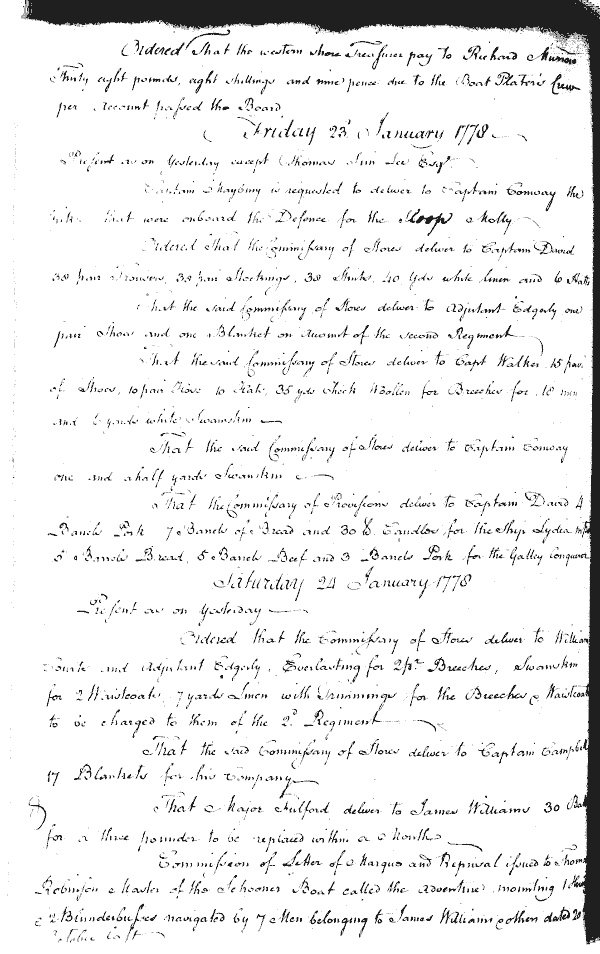 Ordered That the western shore Treasurer pay to Richard
Thirty eight pounds, eight shillings and nine pence due to the Boat Plater's Crew
per Account passed the Board
Friday 23d January 1778
Present as on Yesterday except Thomas Sim Lee Esqr
Captain is requested to deliver to Captain Conway the
that were onboard the Defence for the Sloop Molly
Ordered That the Commissary of Stores deliver to Captain David
38 pair Trowsers, 38 pair Stockings, 38 Shirts, 40 yds white linen and 6 Hatts
That the said Commissary of Stores deliver to Adjutant Edgerly one
pair Shoes and one Blanket on Account of the second Regiment
That the said Commissary of Stores deliver to Capt Walker 15 pair
of Shoes, 10 pair Hose 10 Hats, 35 yds check Woollen for Breeches for 18 men
and 6 yards white Swanskin
That the said Commissary of Stores deliver to Captain Conway
one and a half yards Swanskin
That the Commissary of Provisions deliver to Captain David 4
Barrels Pork 7 Barrels of Bread and 30 lb. Candles for the Ship Lydia
5 Barrels Bread, 5 Barrels Beef and 3 Barrels Pork for the Galley Conqueror
Saturday 24 January 1778
Present as on Yesterday
Ordered that the Commissary of Stores deliver to William
and Adjutant Edgerly, Everlasting for 2 pr Breeches, Swanskin
for 2 Waistcoats, 7 yards Linen with Trimmings for the Breeches & Waistcoats
to be charged to them of the 2d Regiment
That the said Commissary of Stores deliver to Captain Campbell
17 Blankets for his Company
That Major Fulford deliver to James Williams 30 Ball
for a three pounder to be replaced within a Month
Commission of Letter of Marque and Reprisal issued to Thomas
Robinson Master of the Schooner Boat called the Adventure mounting 1
& 2 Blunderbusses navigated by 7 Men belonging to James Williams & others dated 20
October last